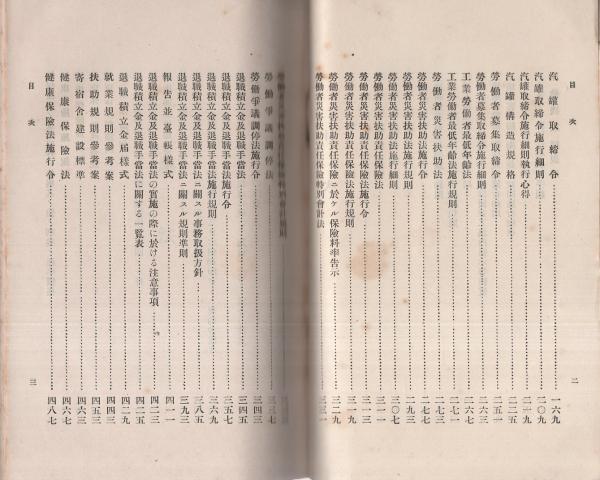 目次
汽罐取締令……一六九
汽罐取締令施行細則……二〇九
汽罐取締令施行細則執行心得
汽罐構造規格……二二五
勞働者募集取締令……二五一
勞働者募集取締令施行細則……二六三
工業勞働者最低年齡法
工業勞働者最低年齡法施行規則……二七一
勞働者災害扶助法……二七七
勞働者災害扶助法施行令
勞働者災害扶助法施行規則……二九三
勞働者災害扶助法施行細則……三〇七
勞働者災害扶助責任保險法
勞働者災害扶助責任保險法施行令……三一三
勞働者災害扶助責任保險法施行規則……三一九
勞働者災害扶助責任保險ニ於ケル保險料率告示……三二九
勞働者災害扶助責任保險特別會計法……三三一
二
勞働爭議調停法……三三七
勞働爭議調停法施行令……三四三
退職積立金及退職手當法……三四五
退職積立金及退職手當法施行令……三五七
退職積立金及退職手當法施行規則……三六九
退職積立金及退職手當法ニ關スル事務取扱方針……三八五
退職積立金及退職手當法ニ關スル規則準則……三九三
報告並臺帳樣式……四一一
退職積立金及退職手當法の實施の際に於ける注意事項……四二三
退職積立金及退職手當法に關する一覽表……四二五
退職積立金屆樣式……四二九
就業規則參考案……四四一
扶助規則參考案……四五三
寄宿舍建設標準……四六三
健康保險法……四六七
健康保險法施行令……四八七
目次
三